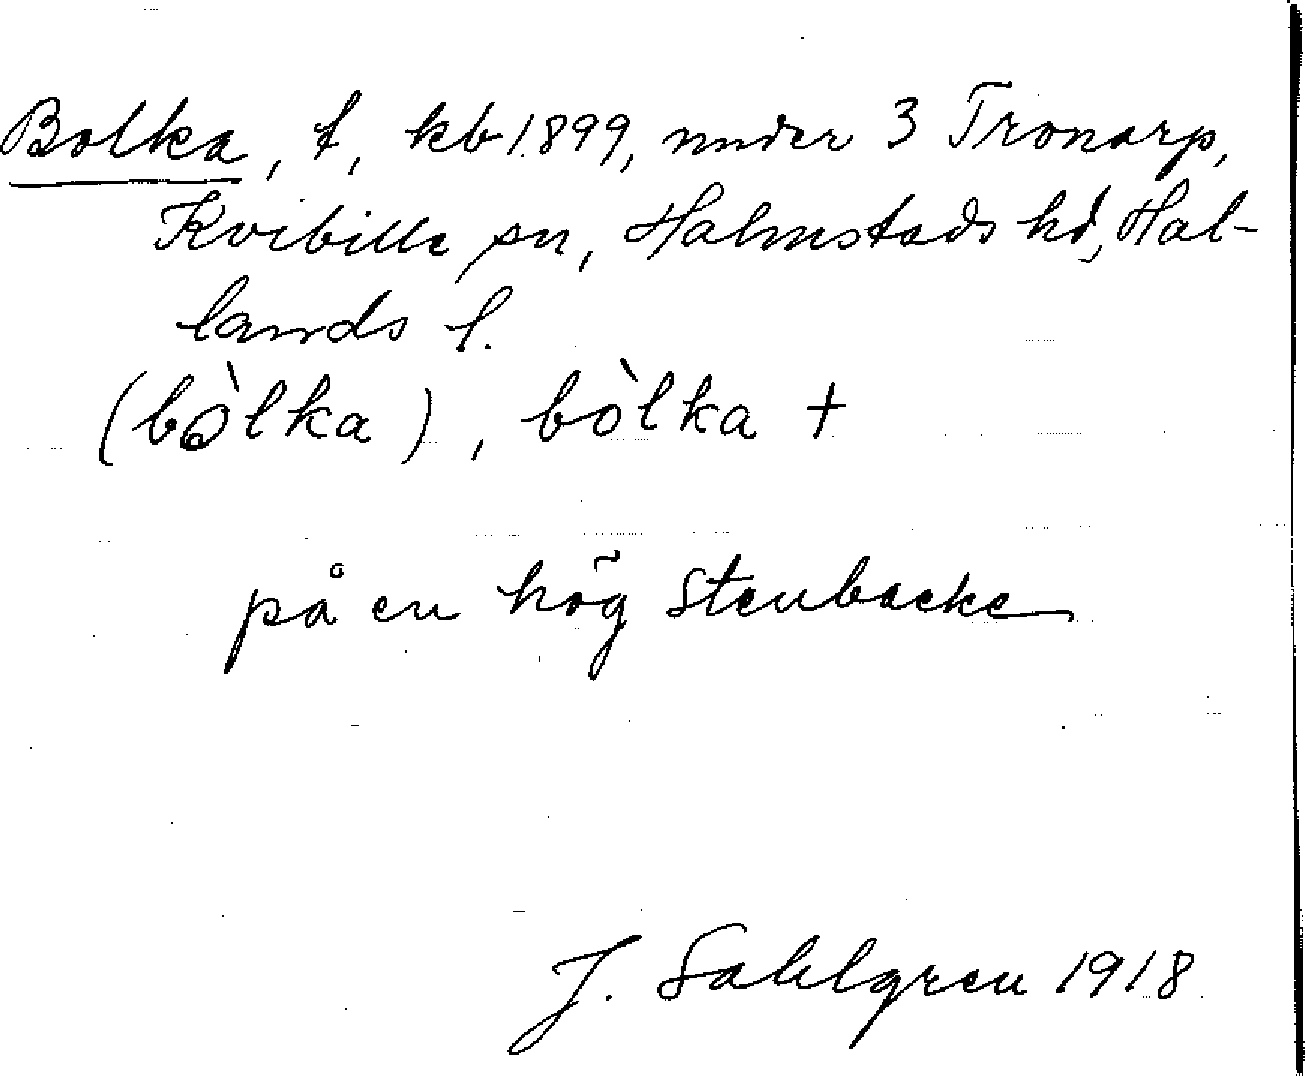 Bolka, t, kb 1899, under 3 Tronarp,
Kvibille sn, Halmstads hd, Hal-
lands l.
(bòlka), bòlka +
på en hög stenbacke
J. Sahlgren 1918